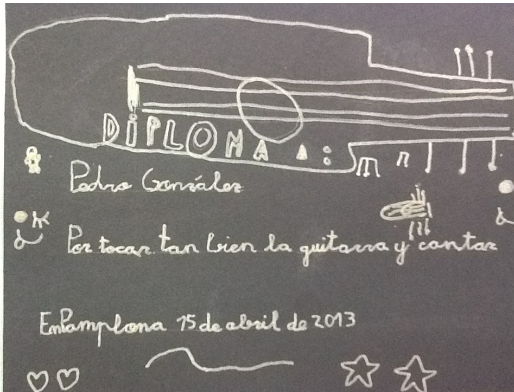 DIPLOMA A:
Pedro González
Por tocar tan bien la guitarra y cantar
En Pamplona 15 de abril de 2013